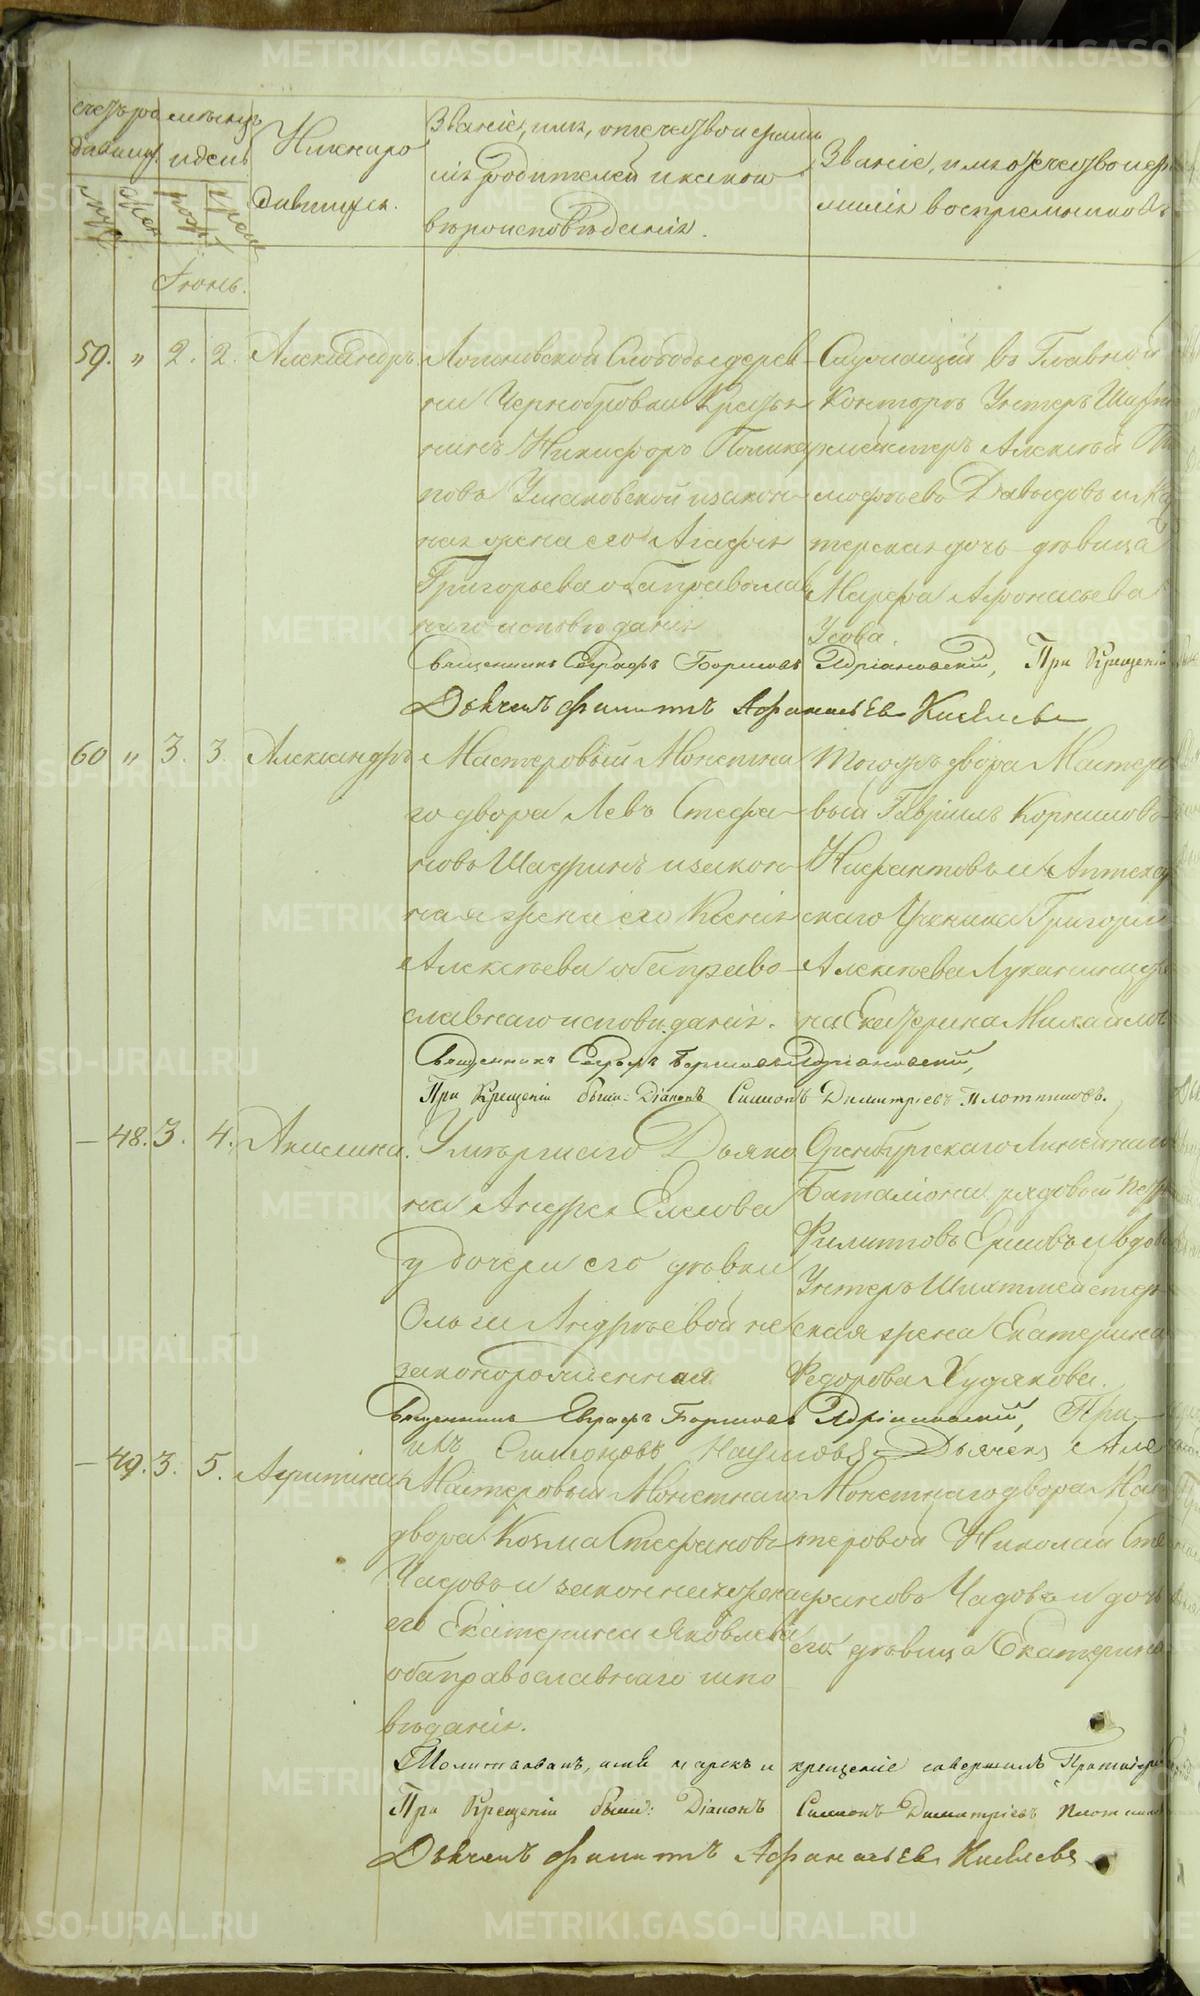 METRIKI.GASO-URAL.RU
счетъ ро
мѣсяцъ
и день
Имена ро
дившихся.
Званіе, имя, отечество и фами
лія родителей и какого
вѣроисповѣданія.
Званіе, имя отечество и
милія воспріемниковъ
Іюнь.
59. " 2. 2. Александръ.
Логиновской Слободы дерев
ни Чернобровки Кресть
нинъ Никифоръ
повъ Ушаковской и закон
ная жена его Агафья
Григорьева оба православ
наго исповѣданія
Служащій въ Главной
Конторѣ Унтеръ Шихт
мейстеръ Алексѣй
мофѣевъ Давыдовъ и
терская дочь дѣвица
Марфа Афонасьева
Усова.
Священникъ Евграфъ Борисовъ Адріановскій, При Крещеніи
Дьячекъ Филиппъ Афанасьевъ Киселевъ
60 " 3. 3. Александръ
Мастеровый Монетна
го двора Левъ Стефа
новъ Шадринъ и закон
ная жена его Ксенія
Алексѣева оба право
славнаго исповѣданія.
тогожъ двора Мастеро
вый Гавріилъ Корниловъ
Нифантовъ и Аптекар
скаго Ученика Григорія
Алексѣева Луканина же
на Екатерина Михайло
Священникъ Евграфъ Борисовъ Адріановскій,
При Крещеніи были: Діаконъ Симеонъ Димитріевъ Плотниковъ.
— 48. 3. 4. Акилина.
Умершаго Дьяко
на Андрея Елсова
у дочери его дѣвки
Ольги Андреевой не
законорожденная
Оренбургскаго Линейнаго
Баталіона рядовый
Филипповъ Ершовъ и вдова
Унтеръ Шихтмейстер
ская жена Екатерина
Федорова Худякова.
Священникъ Евграфъ Борисовъ Адріановскій, При
Симеоновъ Наумовъ. Дьячекъ Але
— 49. 3. 5. Агрипина
Мастеровый Монетнаго
двора Козма Стефановъ
Чадовъ и законная жена
его Екатерина Яковлева
оба православнаго испо
вѣданія.
Монетнаго двора Мас
теровой Николай Сте
фановъ Чадовъ и дочь
его дѣвица Екатерина
Молитвовалъ, имя нарекъ и крещеніе совершилъ Протоіерей
При Крещеніи были: Діаконъ Симеонъ Димитріевъ Плотник
Дьячекъ Филиппъ Афанасьевъ Киселевъ